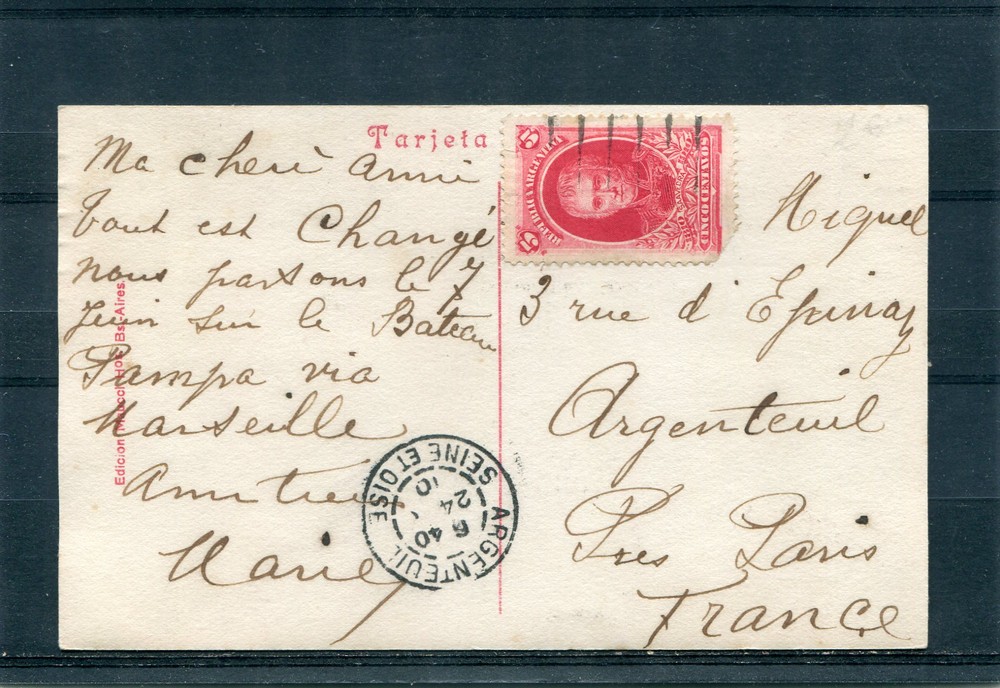 Tarjeta
Ma cheré Amie
tout est Changé
nous partons le 7
Juin sur le Bateau
Pampa via
Marseille
Amitie
Marie
Edicion Bs. Aires.
5
REPUBLICA ARGENTINA
5
CINCO CENTAVOS
Miguel
3 rue d'Epinay
Argenteuil
Pres Paris
France
ARGENTEUIL
SEINE ET OISE
6 40
24
10